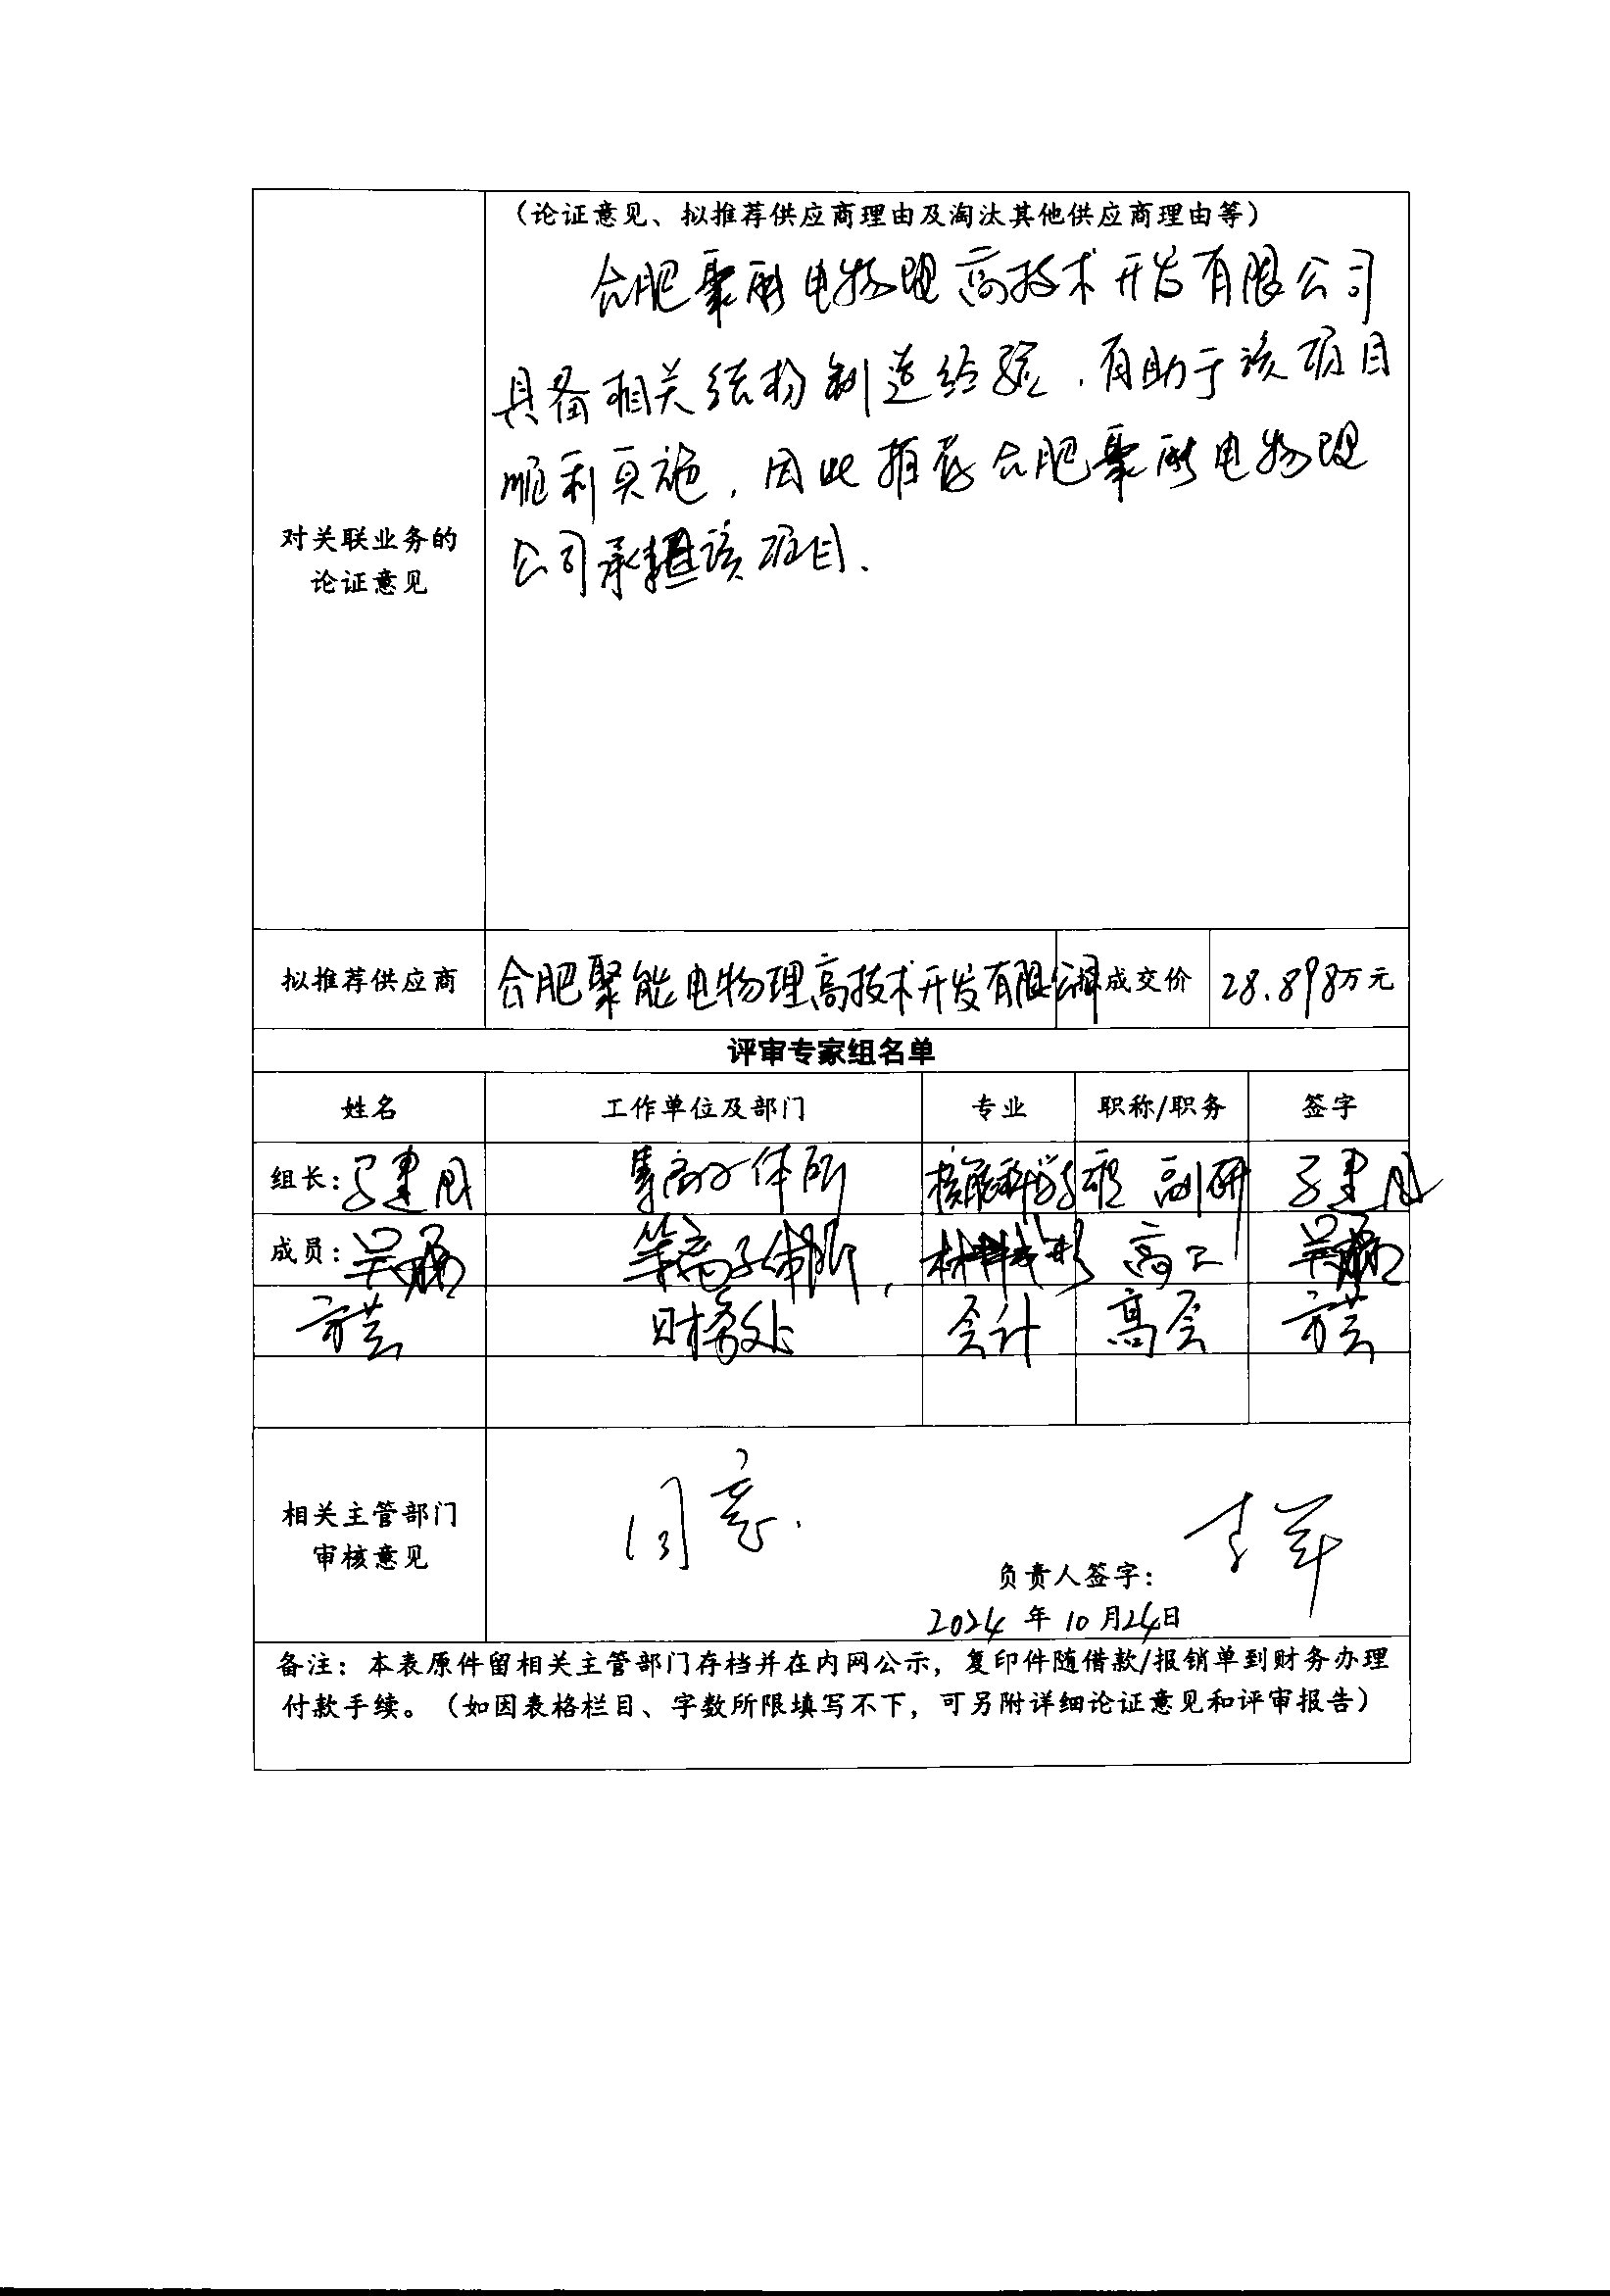 （论证意见、拟推荐供应商理由及淘汰其他供应商理由等）
合肥聚能电物理高技术开发有限公司
具备相关结构制造经验，有助于该项目
顺利实施，因此推荐合肥聚能电物理
公司承担该项目.
对关联业务的
论证意见
拟推荐供应商 合肥聚能电物理高技术开发有限公司 成交价 28.898万元
评审专家组名单
姓名 工作单位及部门 专业 职称/职务 签字
组长： 等离子体所 核能科学与工程 副研
成员：吴 等离子体所 材料成形 高工 吴
方芸 财务处 会计 高会 方芸
相关主管部门
审核意见
同意.
负责人签字：
2024 年 10 月24日
备注：本表原件留相关主管部门存档并在内网公示，复印件随借款/报销单到财务办理
付款手续。（如因表格栏目、字数所限填写不下，可另附详细论证意见和评审报告）